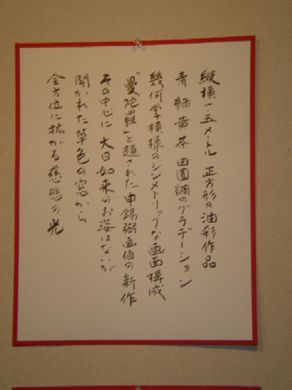 縦横一・五メートル 正方形の油彩作品
青 緑 黄 茶 田園調のグラデーション
幾何学模様のシンメトリックな画面構成
「曼陀羅」と題された申錫弼画伯の新作
その中心に 大日如来のお姿はないが
開かれた草色の窓から
全方位に拡がる慈悲の光